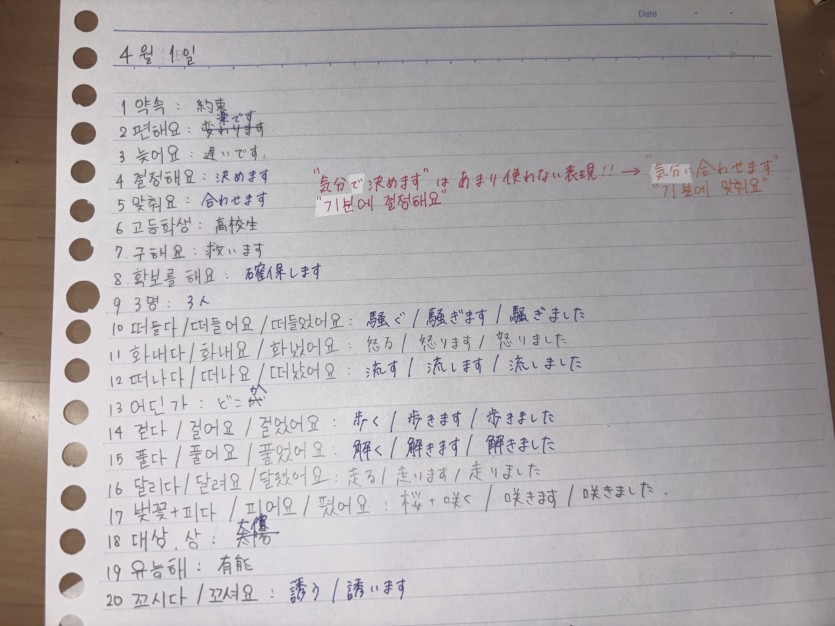 Date
4월 1일
1 약속 : 約束
2 편해요 : 楽です
3 늦어요 : 遅いです.
4 결정해요 : 決めます
"気分で決めます" は あまり 使わない 表現!! → "気分に合わせます"
"기분에 결정해요" "기분에 맞춰요"
5 맞춰요 : 合わせます
6 고등학생 : 高校生
7. 구해요 : 救います
8. 확보를 해요 : 確保します
9 3명 : 3人
10 떠들다 / 떠들어요 / 떠들었어요 : 騒ぐ / 騒ぎます / 騒ぎました
11 화내다 / 화내요 / 화냈어요 : 怒る / 怒ります / 怒りました
12 떠나다 / 떠나요 / 떠났어요 : 流す / 流します / 流しました
13 어딘가 : どこか
14 걷다 / 걸어요 / 걸었어요 : 歩く / 歩きます / 歩きました
15 풀다 / 풀어요 / 풀었어요 : 解く / 解きます / 解きました
16 달리다 / 달려요 / 달렸어요 : 走る / 走ります / 走りました
17 벚꽃+피다 / 피어요 / 폈어요 : 桜+咲く / 咲きます / 咲きました.
18 대상, 상 :
19 유능해 : 有能
20 꼬시다 / 꼬셔요 : 誘う / 誘います